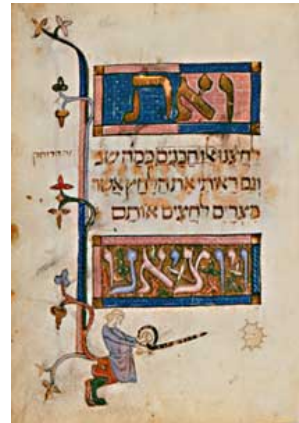 ואת
לחצנו הבנים כמה שנ
וגם ראיתי את הלחץ אשר
מצרים לחצים אותם
ויוציאנו